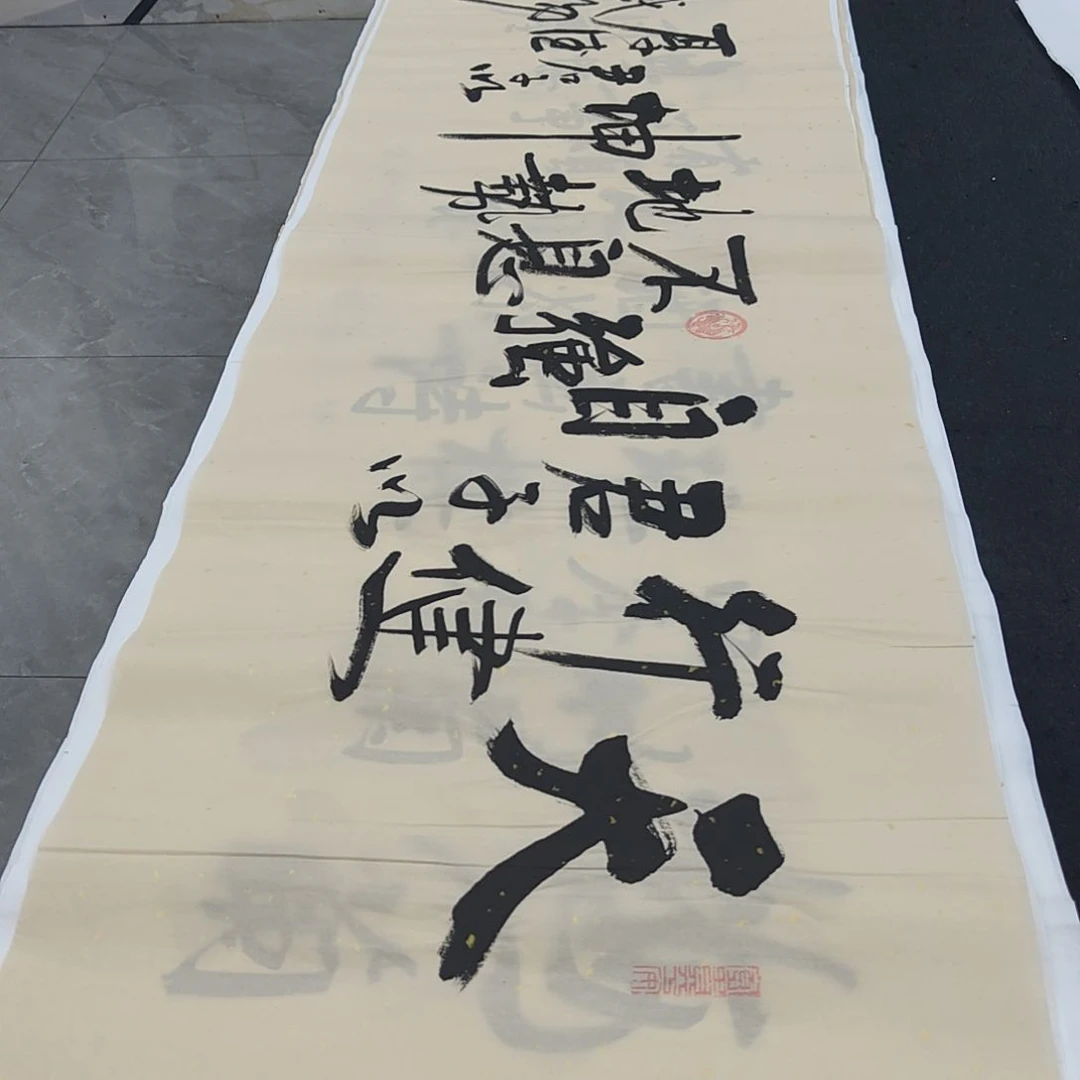 天
行健
君子以
自強
不息
地勢
坤
君子以
厚德